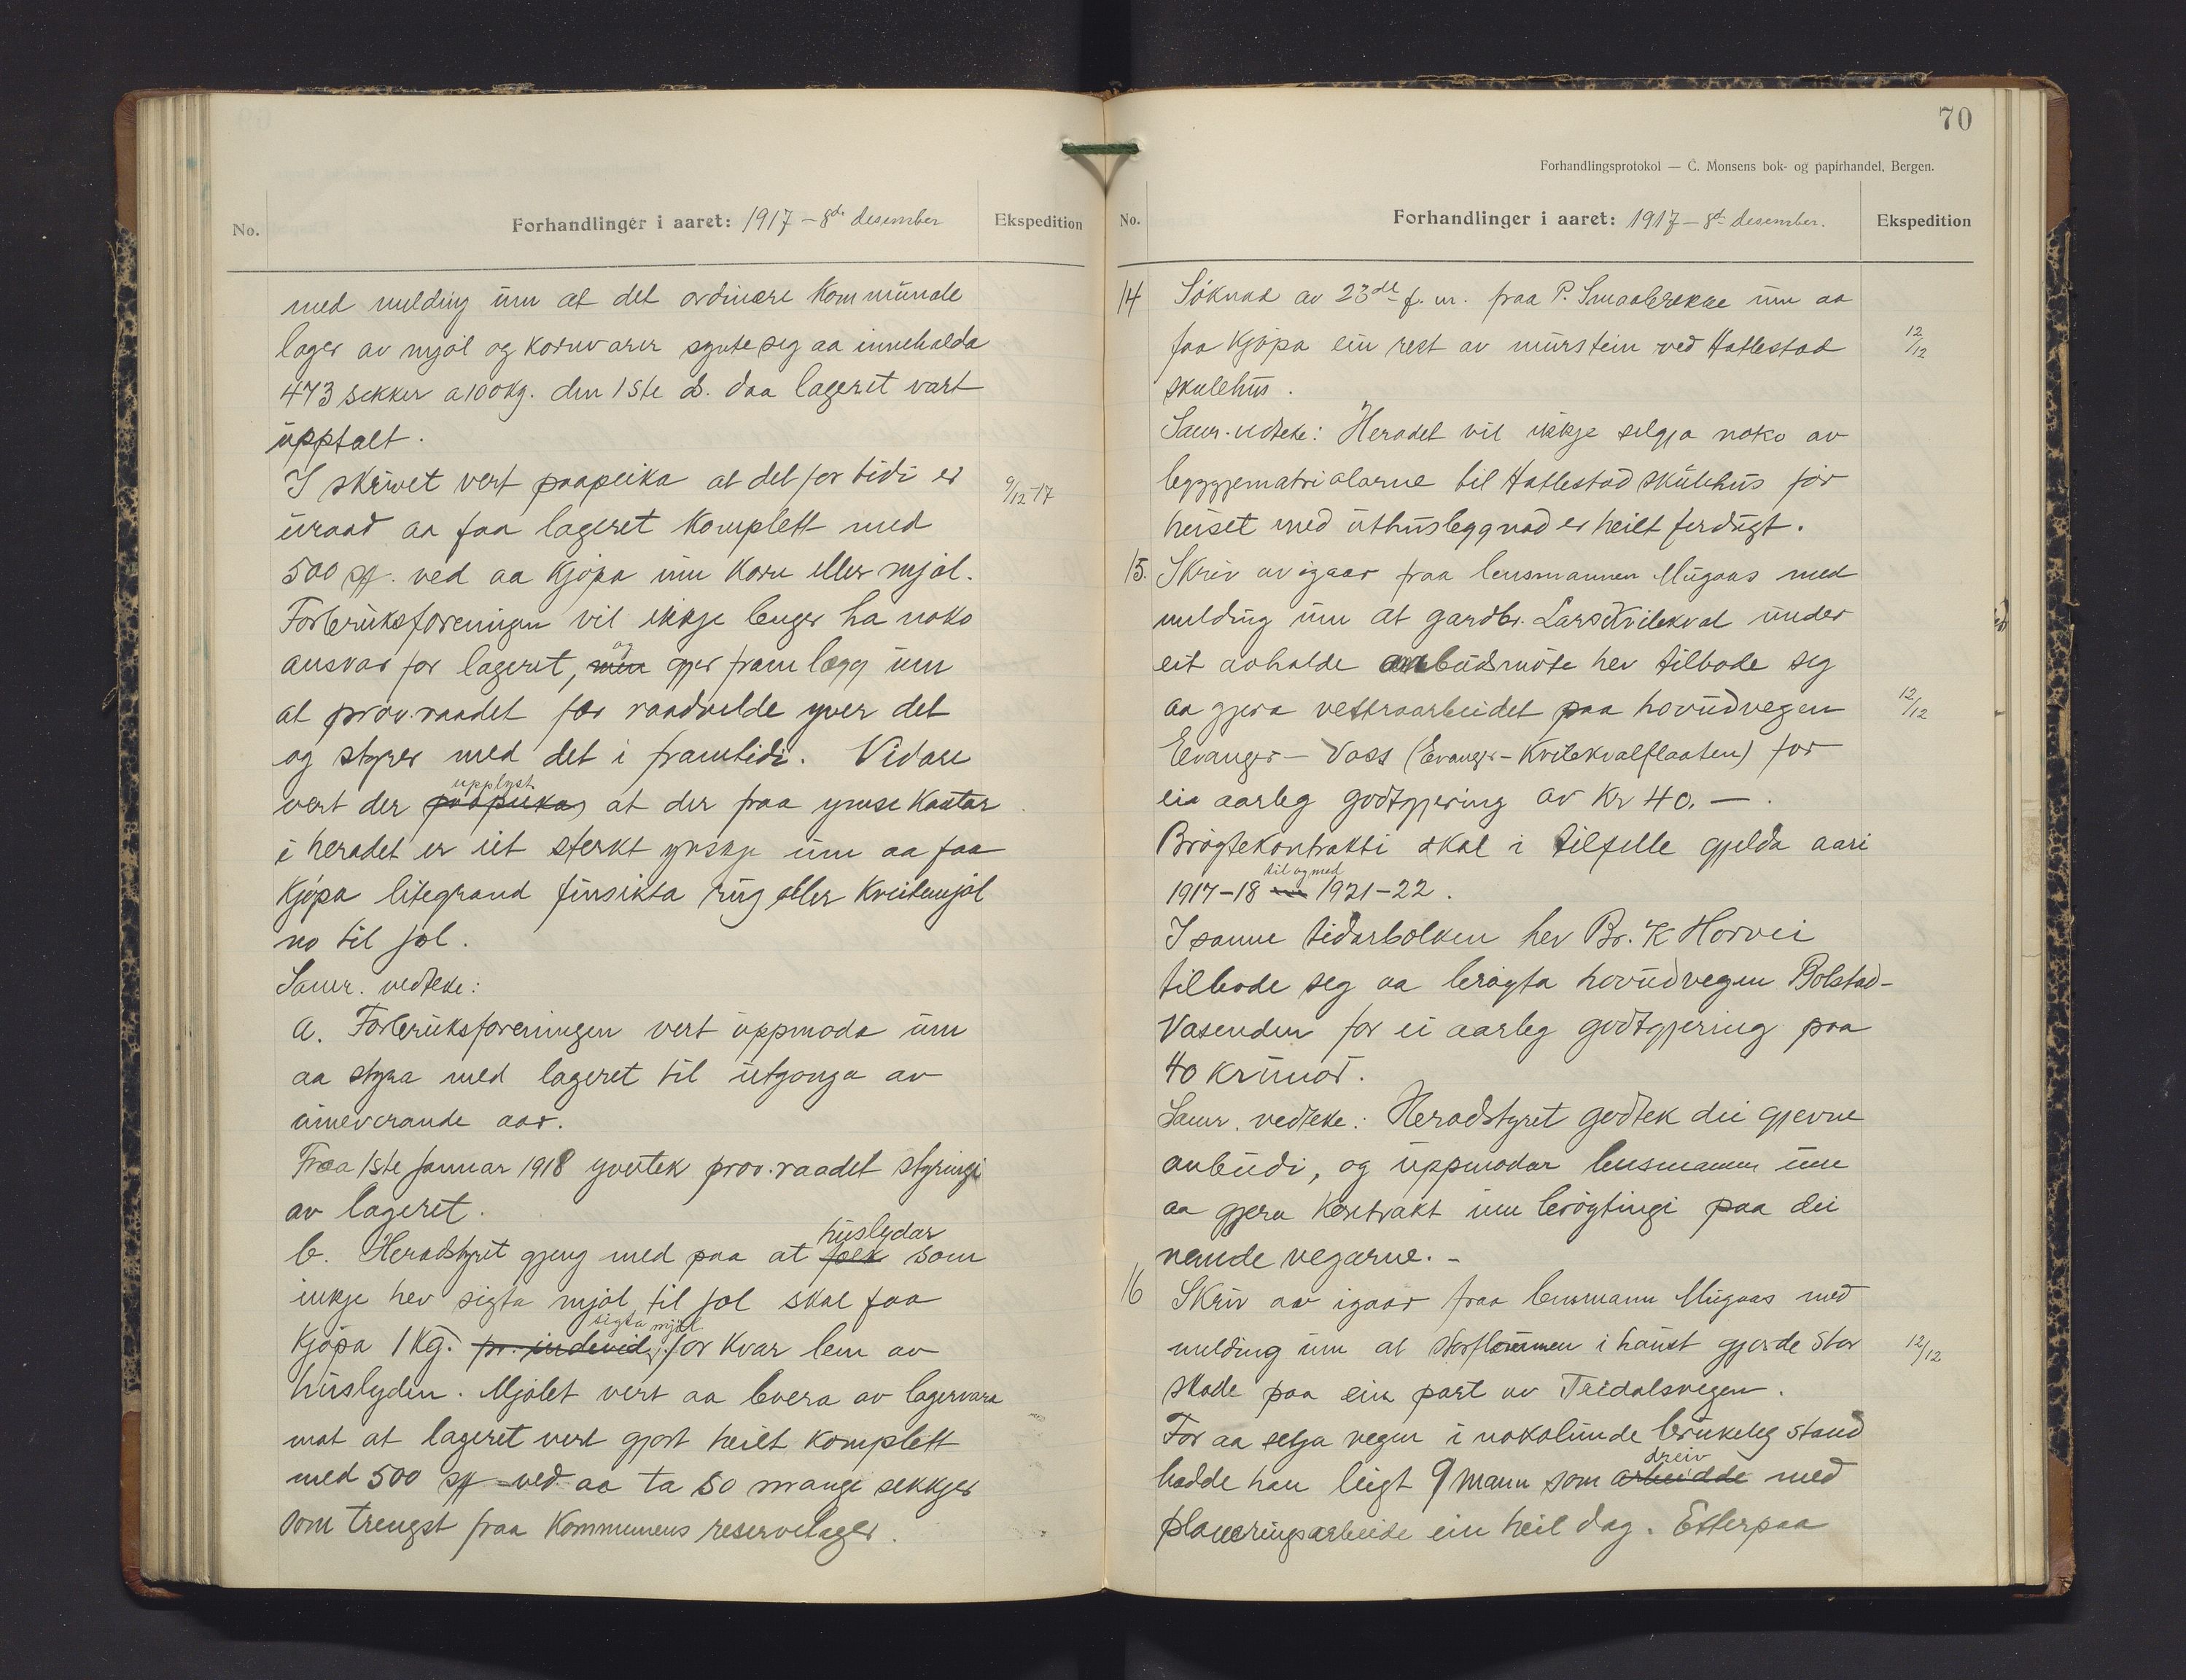 No.
Forhandlinger i aaret: 1917 – 8de desember
Ekspedition
med melding um at det ordinære kommunale
lager av mjøl og kornvarer synte seg aa innehalda
473 sekker a 100 kg. den 1ste ds. daa lageret vart
upptalt.
I skrivet vert paapeika at det for tidi er
9/12-17
uraad aa faa lageret komplett med
500 sk. ved aa kjøpa inn korn eller mjøl.
Forbruksforeningen vil ikkje lenger ha noko
og
ansvar for lageret, men gjer framlegg um
at prov.raadet fær raadvelde yver det
og styrer med det i framtidi. Vidare
upplyst
vert der paapeika, at der fraa ymse kantar
i heradet er eit sterkt ynskje um aa faa
kjøpa litegrand finsikta rug eller kveitemjøl
no til jol.
Samr. vedteke:
a. Forbruksforeningen vert uppmoda um
aa styra med lageret til utgonga av
inneverande aar.
Fraa 1ste januar 1918 yvertek prov.raadet styringi
av lageret.
huslydar
b. Heradstyret gjeng med paa at folk som
inkje hev sigta mjøl til jol skal faa
sigta mjøl
kjøpa 1 kg. pr. individ, for kvar lem av
huslyden. Mjølet vert aa levera av lagervara
mot at lageret vert gjort heilt komplett
med 500 sk ved aa ta so mange sekkjer
som trengst fraa kommunens reservelager.
70
Forhandlingsprotokol — C. Monsens bok- og papirhandel, Bergen.
No.
Forhandlinger i aaret: 1917 – 8de desember.
Ekspedition
14 Søknad av 23de f.m. fraa P. Smaabrekke um aa
faa kjøpa ein rest av murstein ved Hatlestad
12/12
skulehus.
Samr. vedteke: Heradet vil ikkje selgja noko av
byggjematrialarne til Hatlestad skulehus før
huset med uthusbyggnad er heilt ferdigt.
15. Skriv av igaar fraa lensmannen Mugaas med
melding um at gardbr. Lars Kvilekval under
eit avholde anbudsmøte hev tilbode seg
aa gjera vetterarbeidet paa hovudvegen
12/12
Evanger – Voss (Evanger – Kvilekvalflaaten) for
ein aarleg godtgjering av kr 40. — .
Brøgtekontrakti skal i tilfelle gjelda aari
til og med
1917–18 1921–22.
I same tidarbolken hev Br. K Horvei
tilbode seg aa brøgta hovudvegen Bolstad-
Vasenden for ei aarleg godtgjering paa
40 krunor.
Samr. vedteke: Heradstyret godtek dei gjevne
anbudi, og uppmodar lensmannen um
aa gjera kontrakt um brøgtingi paa dei
nemde vegarne. -
16 Skriv av igaar fraa lensmann Mugaas med
melding um at storflaumen i haust gjorde stor
12/12
skade paa ein part av Teidalsvegen.
For aa setja vegen i nokolunde brukeleg stand
dreiv
hadde han leigt 9 mann som arbeidde med
planeringsarbeide ein heil dag. Etterpaa